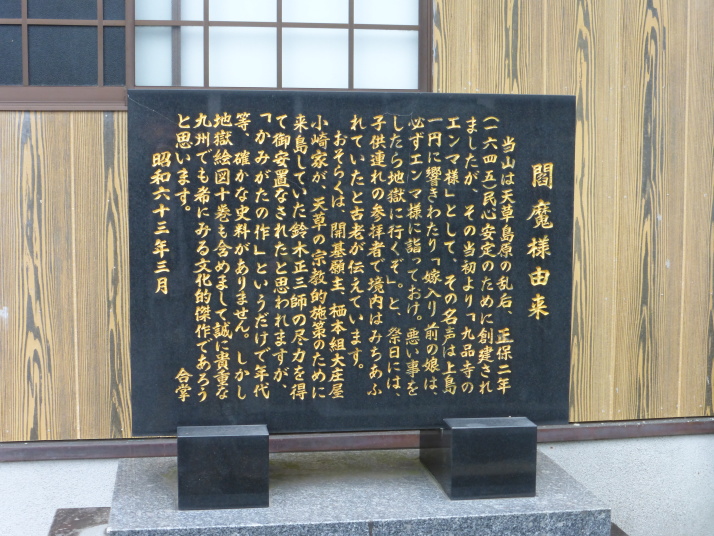 閻魔様由来
当山は天草島原の乱后、正保二年
(一六四五)民心安定のために創建され
ましたが、その当初より「九品寺の
エンマ様」として、その名声は上島
一円に響きわたり「嫁入り前の娘は、
必ずエンマ様に詣っておけ。悪い事を
したら地獄に行くぞ。」と、祭日には、
子供連れの参拝者で境内はみちあふ
れていたと古老が伝えています。
おそらくは、開基願主、栖本組大庄屋
小崎家が、天草の宗教的施策のために
来島していた鈴木正三師の尽力を得
て御安置なされたと思われますが、
「かみがたの作」というだけで年代
等、確かな史料がありません。しかし
地獄絵図十巻も含めまして誠に貴重な
九州でも希にみる文化的傑作であろう
と思います。
合掌
昭和六十三年三月